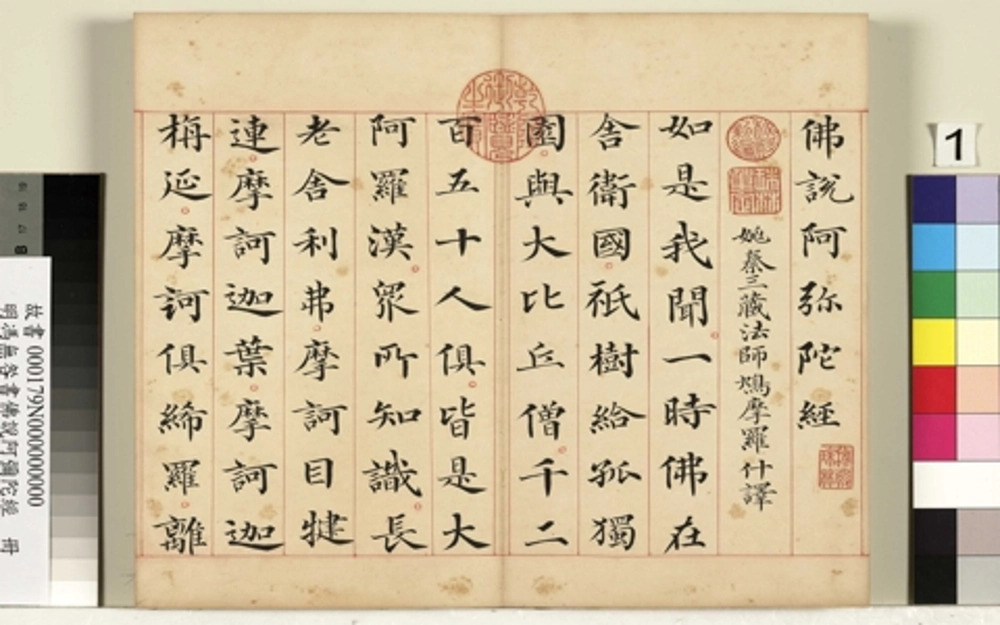 佛說阿弥陀經
姚秦三藏法師鳩摩羅什譯
如是我聞一時佛在
舍衛國祇樹給孤獨
園與大比丘僧千二
百五十人俱皆是大
阿羅漢眾所知識長
老舍利弗摩訶目犍
連摩訶迦葉摩訶迦
栴延摩訶俱絺羅離
1
8
故書 000179N000000000
明馮無咎書佛說阿彌陀經 冊